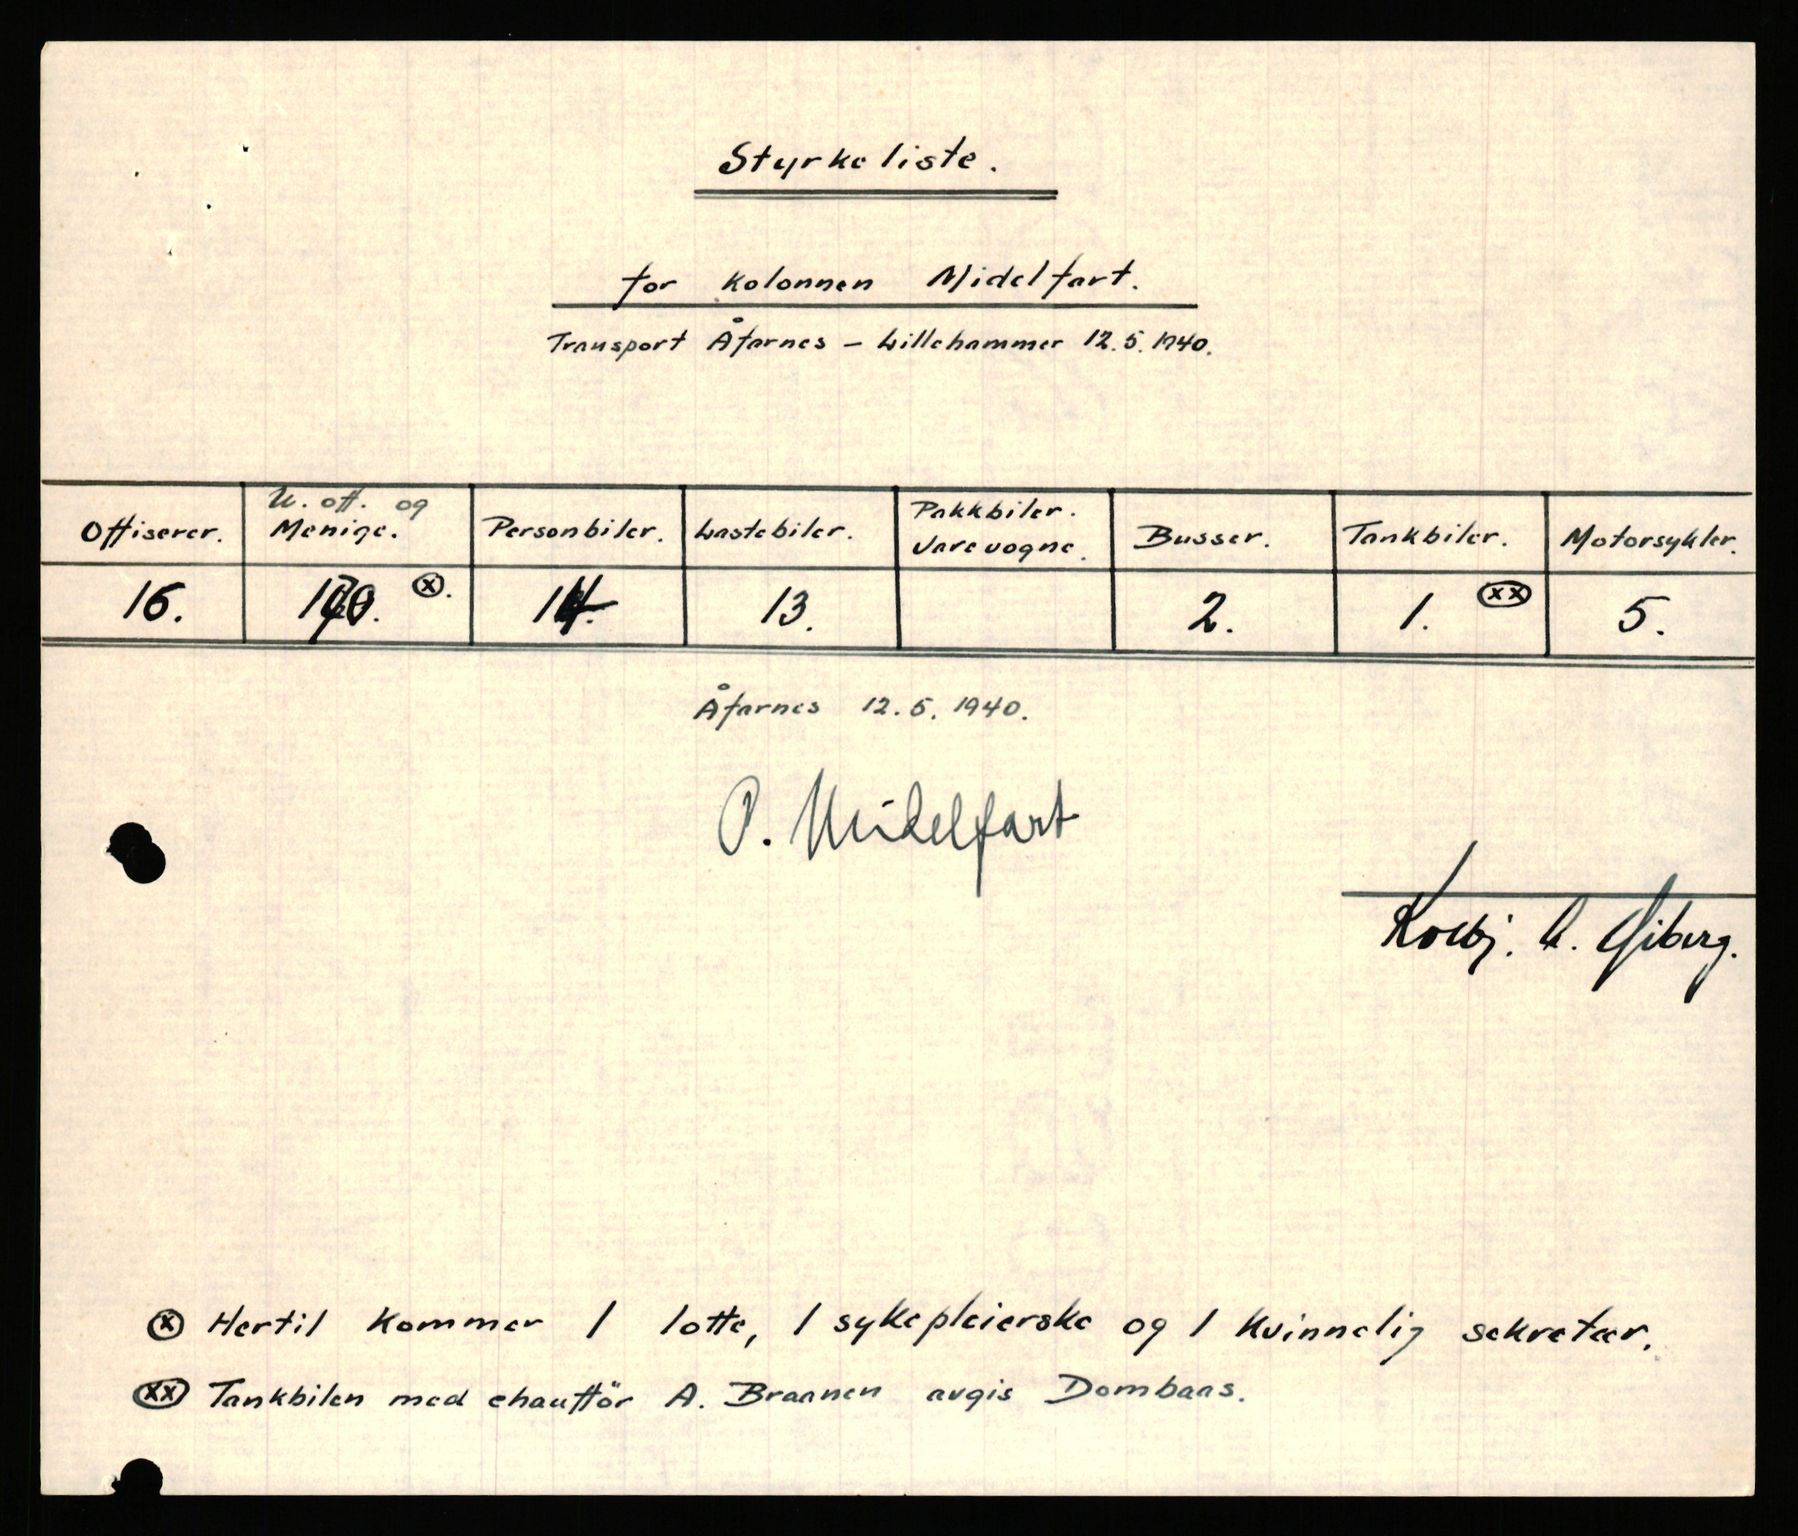 Styrkeliste.
for kolonnen Midelfart.
Transport Åfarnes – Lillehammer 12.5.1940.
Offiserer. U. off. og Menige. Personbiler. Lastebiler. Pakkbiler. Varevogne. Busser. Tankbiler. Motorsykler.
16. (x). 13. 2. 1. (xx) 5.
Åfarnes 12.5.1940.
P. Midelfart
(x) Hertil kommer 1 lotte, 1 sykepleierske og 1 kvinnelig sekretær.
(xx) Tankbilen med chaufför A. Braanen avgis Dombaas.